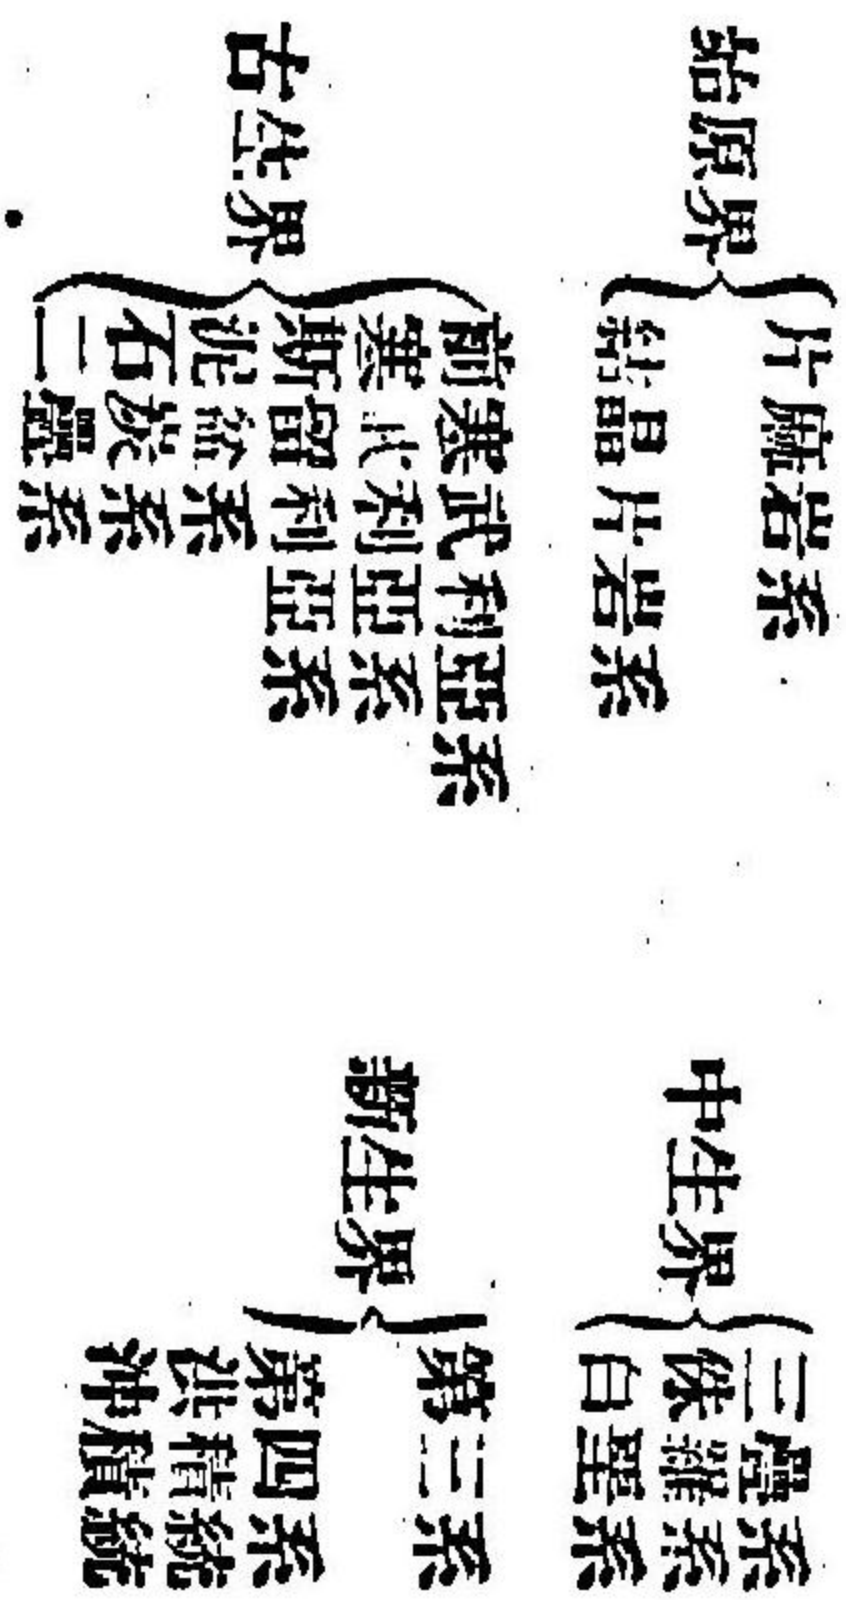 始原界
片麻岩系
結晶片岩系
古生界
前寒武利亞系
寒武利亞系
斯留利亞系
泥盆系
石炭系
二疊系
中生界
三疊系
侏羅系
白堊系
新生界
第三系
第四系
洪積統
冲積統